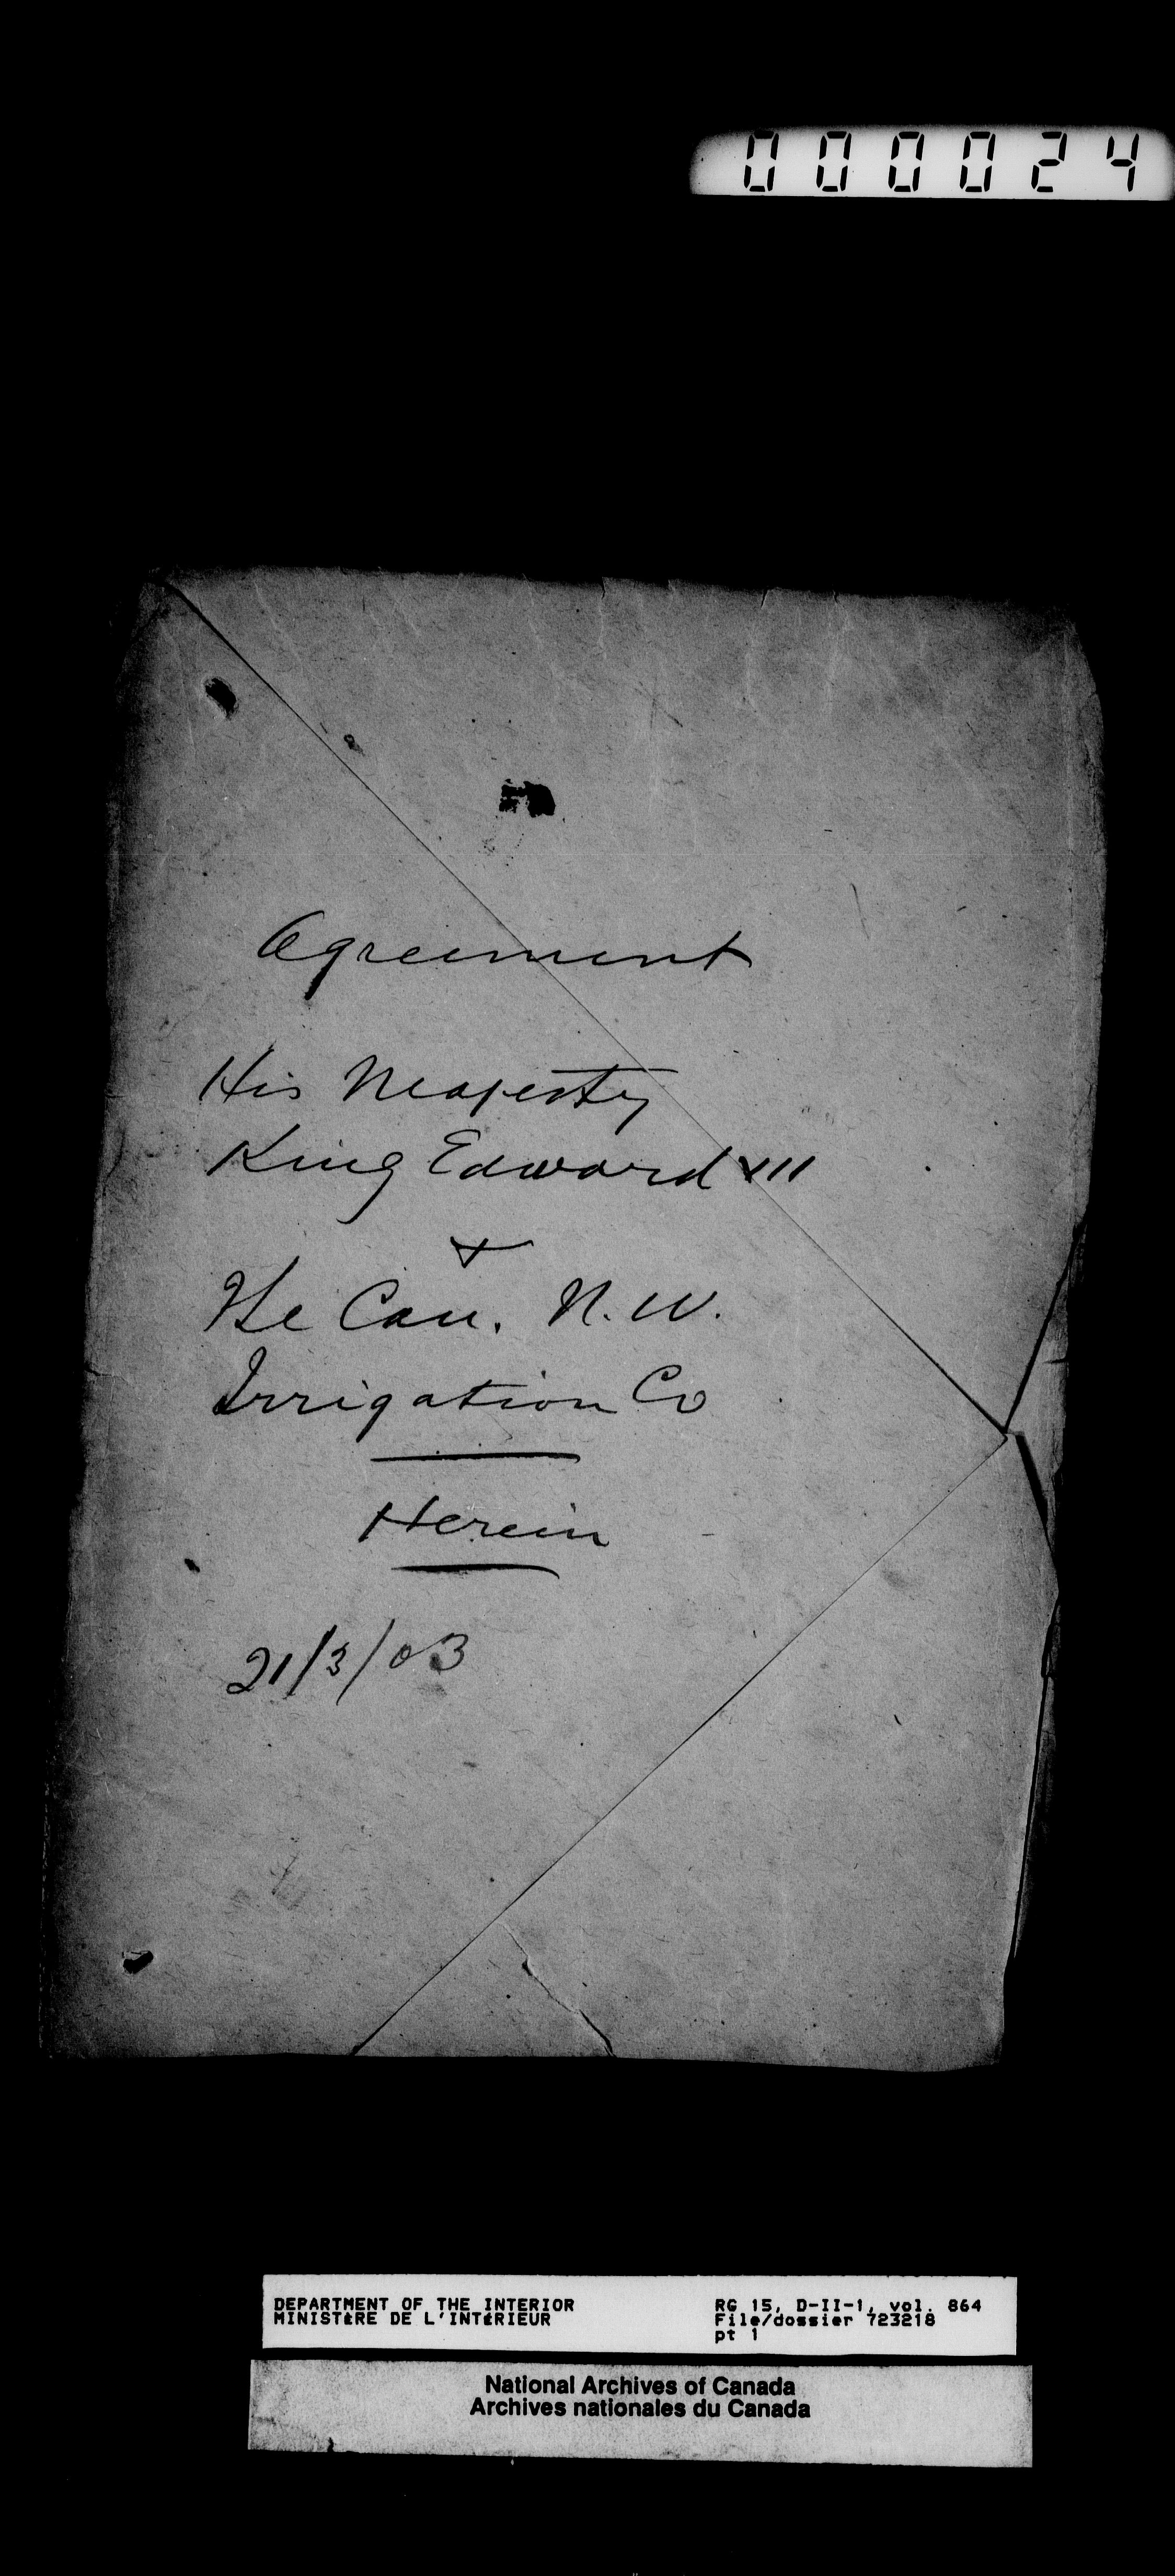 000024
Agreement
His Majesty
King Edward VII
&
The Can. N. W.
Irrigation Co
Herein
21/3/03
DEPARTMENT OF THE INTERIOR
MINISTÈRE DE L'INTÉRIEUR
RG 15, D-II-1, vol. 864
File/dossier 723218
pt 1
National Archives of Canada
Archives nationales du Canada